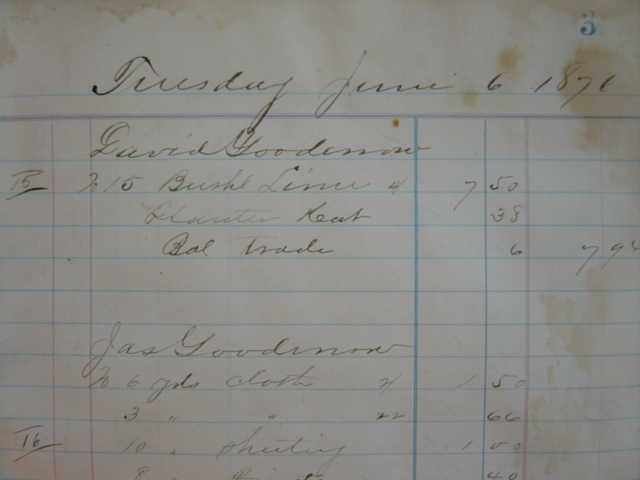 3
Tuesday June 6 1876
David Goodenow
15 To 15 Bushl Lime 4/ 7 50
Hat 38
Bal trade 6 7 94
Jas Goodenow
To 6 yds cloth 1 50
3 " " 22 66
16 10 " Sheeting 1 00
8 " 40